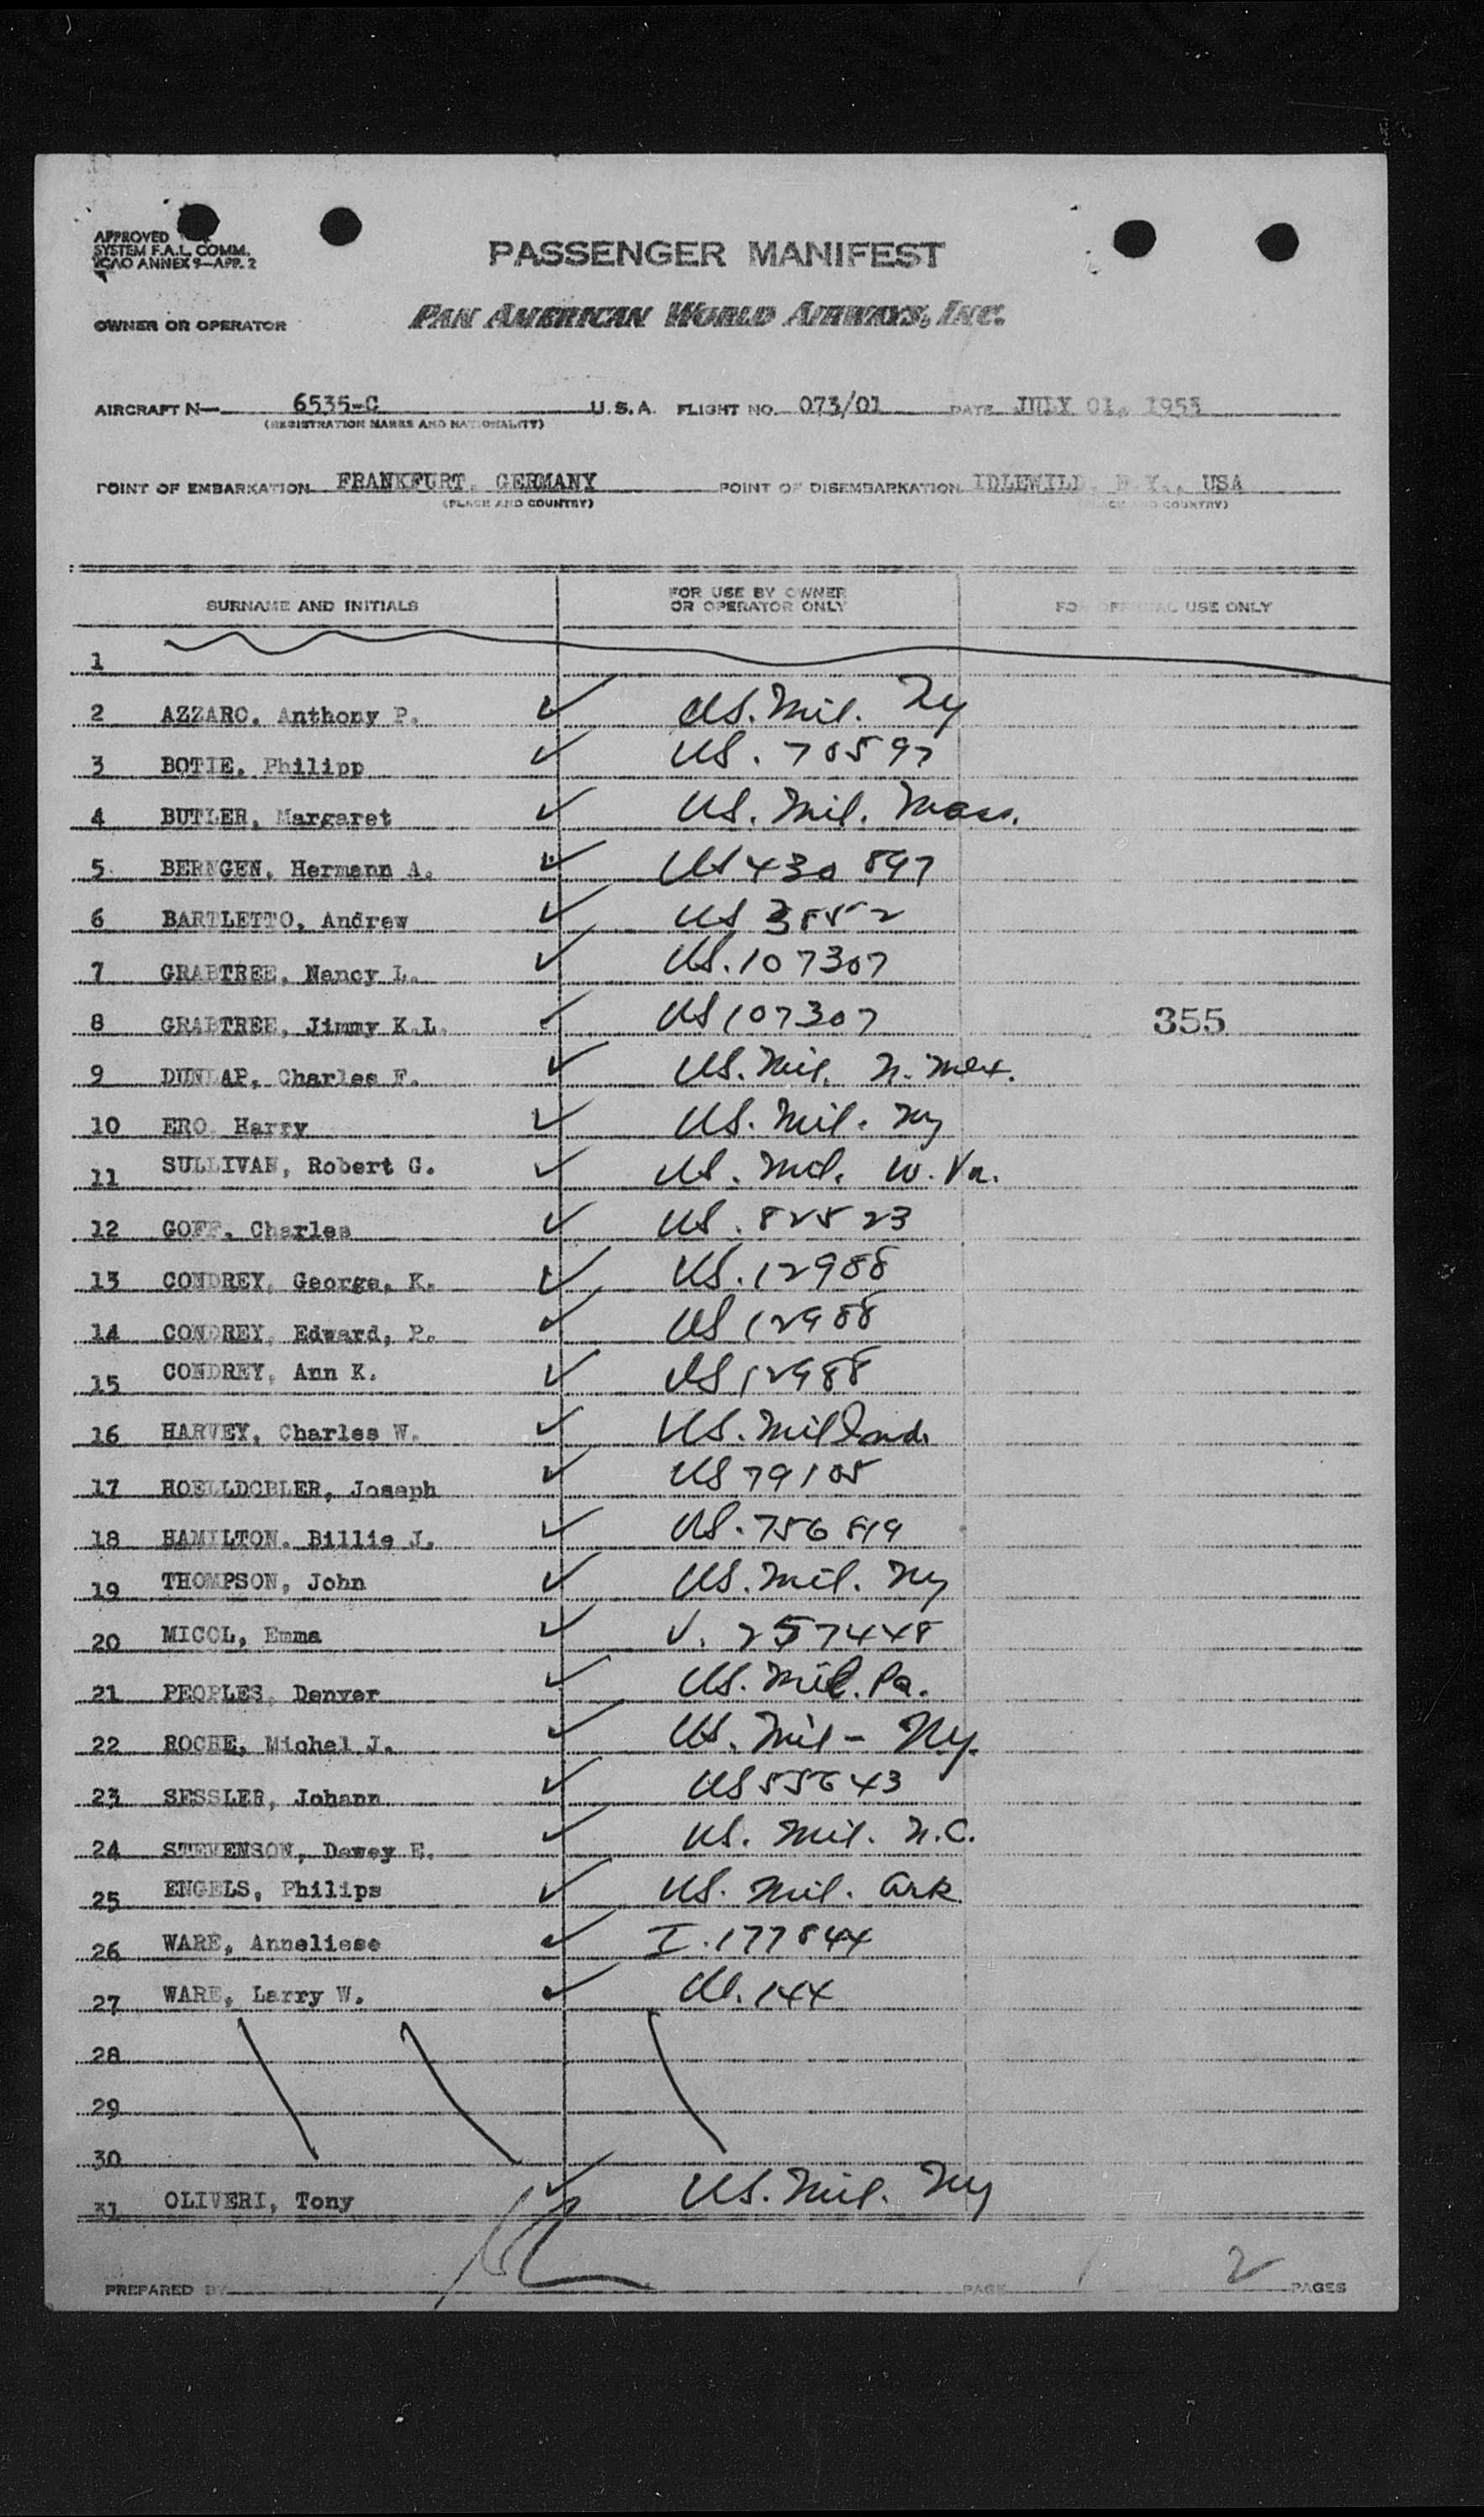 APPROVED
SYSTEM F.A.L. COMM.
ICAO ANNEX 9—APP. 2
PASSENGER MANIFEST
OWNER OR OPERATOR PAN AMERICAN WORLD AIRWAYS, INC.
AIRCRAFT N— 6535-C U.S.A. FLIGHT NO. 073/01 DATE JULY 01, 1953
(REGISTRATION MARKS AND NATIONALITY)
POINT OF EMBARKATION FRANKFURT, GERMANY POINT OF DISEMBARKATION IDLEWILD, N.Y., USA
(PLACE AND COUNTRY) (PLACE AND COUNTRY)
SURNAME AND INITIALS FOR USE BY OWNER OR OPERATOR ONLY FOR OFFICIAL USE ONLY
1
2 AZZARO, Anthony P. ✓ US. Mil. Ny
3 BOTIE, Philipp ✓ US. 70597
4 BUTLER, Margaret ✓ US. Mil. Mass.
5 BERNGEN, Hermann A. ✓ US 430 897
6 BARTLETTO, Andrew ✓ US 3852
7 GRABTREE, Nancy L. ✓ US. 107307
8 GRABTREE, Jimmy K.L. ✓ US 107307 355
9 DUNLAP, Charles F. ✓ US. Mil. N. Mex.
10 ERO Harry ✓ US. Mil. Ny
11 SULLIVAN, Robert G. ✓ US. Mil. W. Va.
12 GOFF, Charles ✓ US. 82523
13 CONDREY, George, K. ✓ US. 12988
14 CONDREY, Edward, P. ✓ US 12988
15 CONDREY, Ann K. ✓ US 12988
16 HARVEY, Charles W. ✓ US. Mil Ind.
17 HOELLDOBLER, Joseph ✓ US 79105
18 HAMILTON, Billie J. ✓ US. 756819
19 THOMPSON, John ✓ US. Mil. Ny
20 MICOL, Emma ✓ V. 257448
21 PEOPLES, Denver ✓ US. Mil. Pa.
22 ROCHE, Michel J. ✓ US. Mil - N.y.
23 SESSLER, Johann ✓ US 55643
24 STEVENSON, Dewey E. ✓ US. Mil. N.C.
25 ENGELS, Philips ✓ US. Mil. Ark.
26 WARE, Anneliese ✓ I. 177844
27 WARE, Larry W. ✓ 144
28
29
30
31 OLIVERI, Tony ✓ US. Mil. Ny
PREPARED BY PAGE 1 2 PAGES